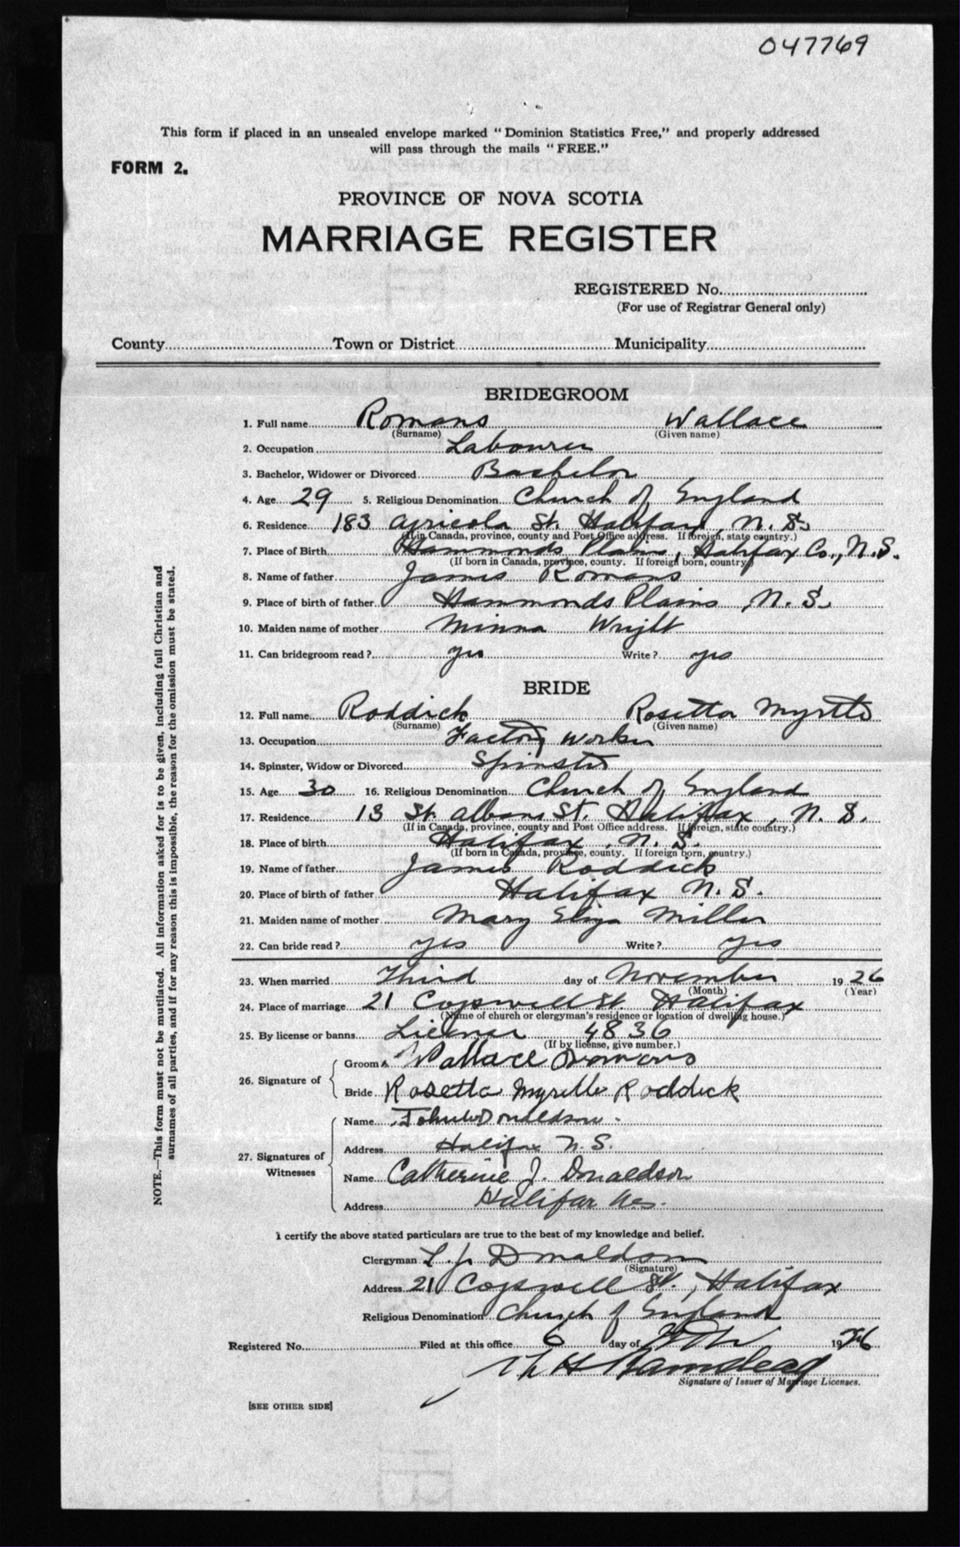 047769
This form if placed in an unsealed envelope marked "Dominion Statistics Free," and properly addressed
will pass through the mails "FREE."
FORM 2.
PROVINCE OF NOVA SCOTIA
MARRIAGE REGISTER
REGISTERED No.
(For use of Registrar General only)
County Town or District Municipality
BRIDEGROOM
1. Full name Romans Wallace
(Surname) (Given name)
2. Occupation Labourer
3. Bachelor, Widower or Divorced Bachelor
4. Age 29 5. Religious Denomination Church of England
6. Residence 183 Agricola St. Halifax, N. S.
(If in Canada, province, county and Post Office address. If foreign, state country.)
7. Place of Birth Hammonds Plains, Halifax Co., N.S.
(If born in Canada, province, county. If foreign born, country.)
8. Name of father James Romans
9. Place of birth of father Hammonds Plains, N. S.
10. Maiden name of mother Minna Wright
11. Can bridegroom read? yes Write? yes
BRIDE
12. Full name Roddick Rosetta Myrtle
(Surname) (Given name)
13. Occupation Factory worker
14. Spinster, Widow or Divorced Spinster
15. Age 30 16. Religious Denomination Church of England
17. Residence 13 St. Albans St. Halifax, N. S.
(If in Canada, province, county and Post Office address. If foreign, state country.)
18. Place of birth Halifax, N. S.
(If born in Canada, province, county. If foreign born, country.)
19. Name of father James Roddick
20. Place of birth of father Halifax N. S.
21. Maiden name of mother Mary Eliza Miller
22. Can bride read? yes Write? yes
23. When married Third day of November 1926
(Month) (Year)
24. Place of marriage 21 Cogswell St. Halifax
(Name of church or clergyman's residence or location of dwelling house.)
25. By license or banns License 4836
(If by license, give number.)
26. Signature of Groom Wallace Romans
Bride Rosetta Myrtle Roddick
27. Signatures of Witnesses Name Donaldson
Address Halifax N. S.
Name Catherine J. Donaldson
Address Halifax N.S.
I certify the above stated particulars are true to the best of my knowledge and belief.
Clergyman L. J. Donaldson
(Signature)
Address 21 Cogswell St., Halifax
Religious Denomination Church of England
Registered No. Filed at this office 6 day of 1926
Signature of Issuer of Marriage Licenses.
[SEE OTHER SIDE]
NOTE.—This form must not be mutilated. All information asked for is to be given, including full Christian and
surnames of all parties, and if for any reason this is impossible, the reason for the omission must be stated.